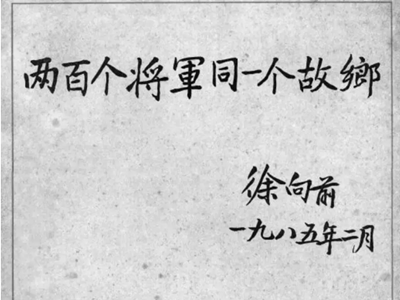 两百个将軍同一个故鄉
徐向前
一九八五年二月